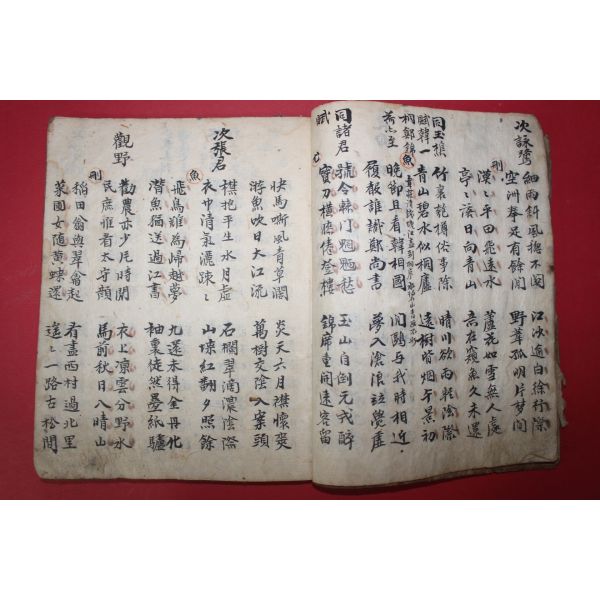 次詠鷺
細雨斜風捲不閑 江沙適白徐行際
刑
空洲拳足有餘閒 野葦孤明片夢間
漠々平田飛遠水 蘆花如雪無人處
亭々落日向青山 意在窺魚久未還
同玉樵
賦韓一
桐鄭錦
竹裏乾樽俗事除 晴川欲雨乾陰際
魚
青山碧水似桐廬 遠樹皆烟午景初
晚節且看韓相國 閒鷗與我時相近
履報誰識鄭尚書 夢入滄浪認覺虛
同諸君
賦
號令轅門魍魎愁 玉山自倒元戎醉
寶刀橫膝倦登樓 錦席重開遠客留
快馬嘶風青草濶 炎天六月襟懷爽
游魚吹日大江流 萬樹交陰入案頭
次張君
樵把平生水月虛 石欄翠滴濃陰際
衣巾清氣灑踈々 山埭紅翻夕照餘
魚
飛鳥難為歸越夢 九還未得金丹化
潛魚猶送過江書 袖裏徒然墨紙驢
觀野
勸農亦少片時閒 衣上凉雲分野水
民庶惟看太守顏 馬前秋日入晴山
刑
稻田翁與翠禽起 看盡西村過北里
菜圃女隨黃蝶還 迢々一路古松間